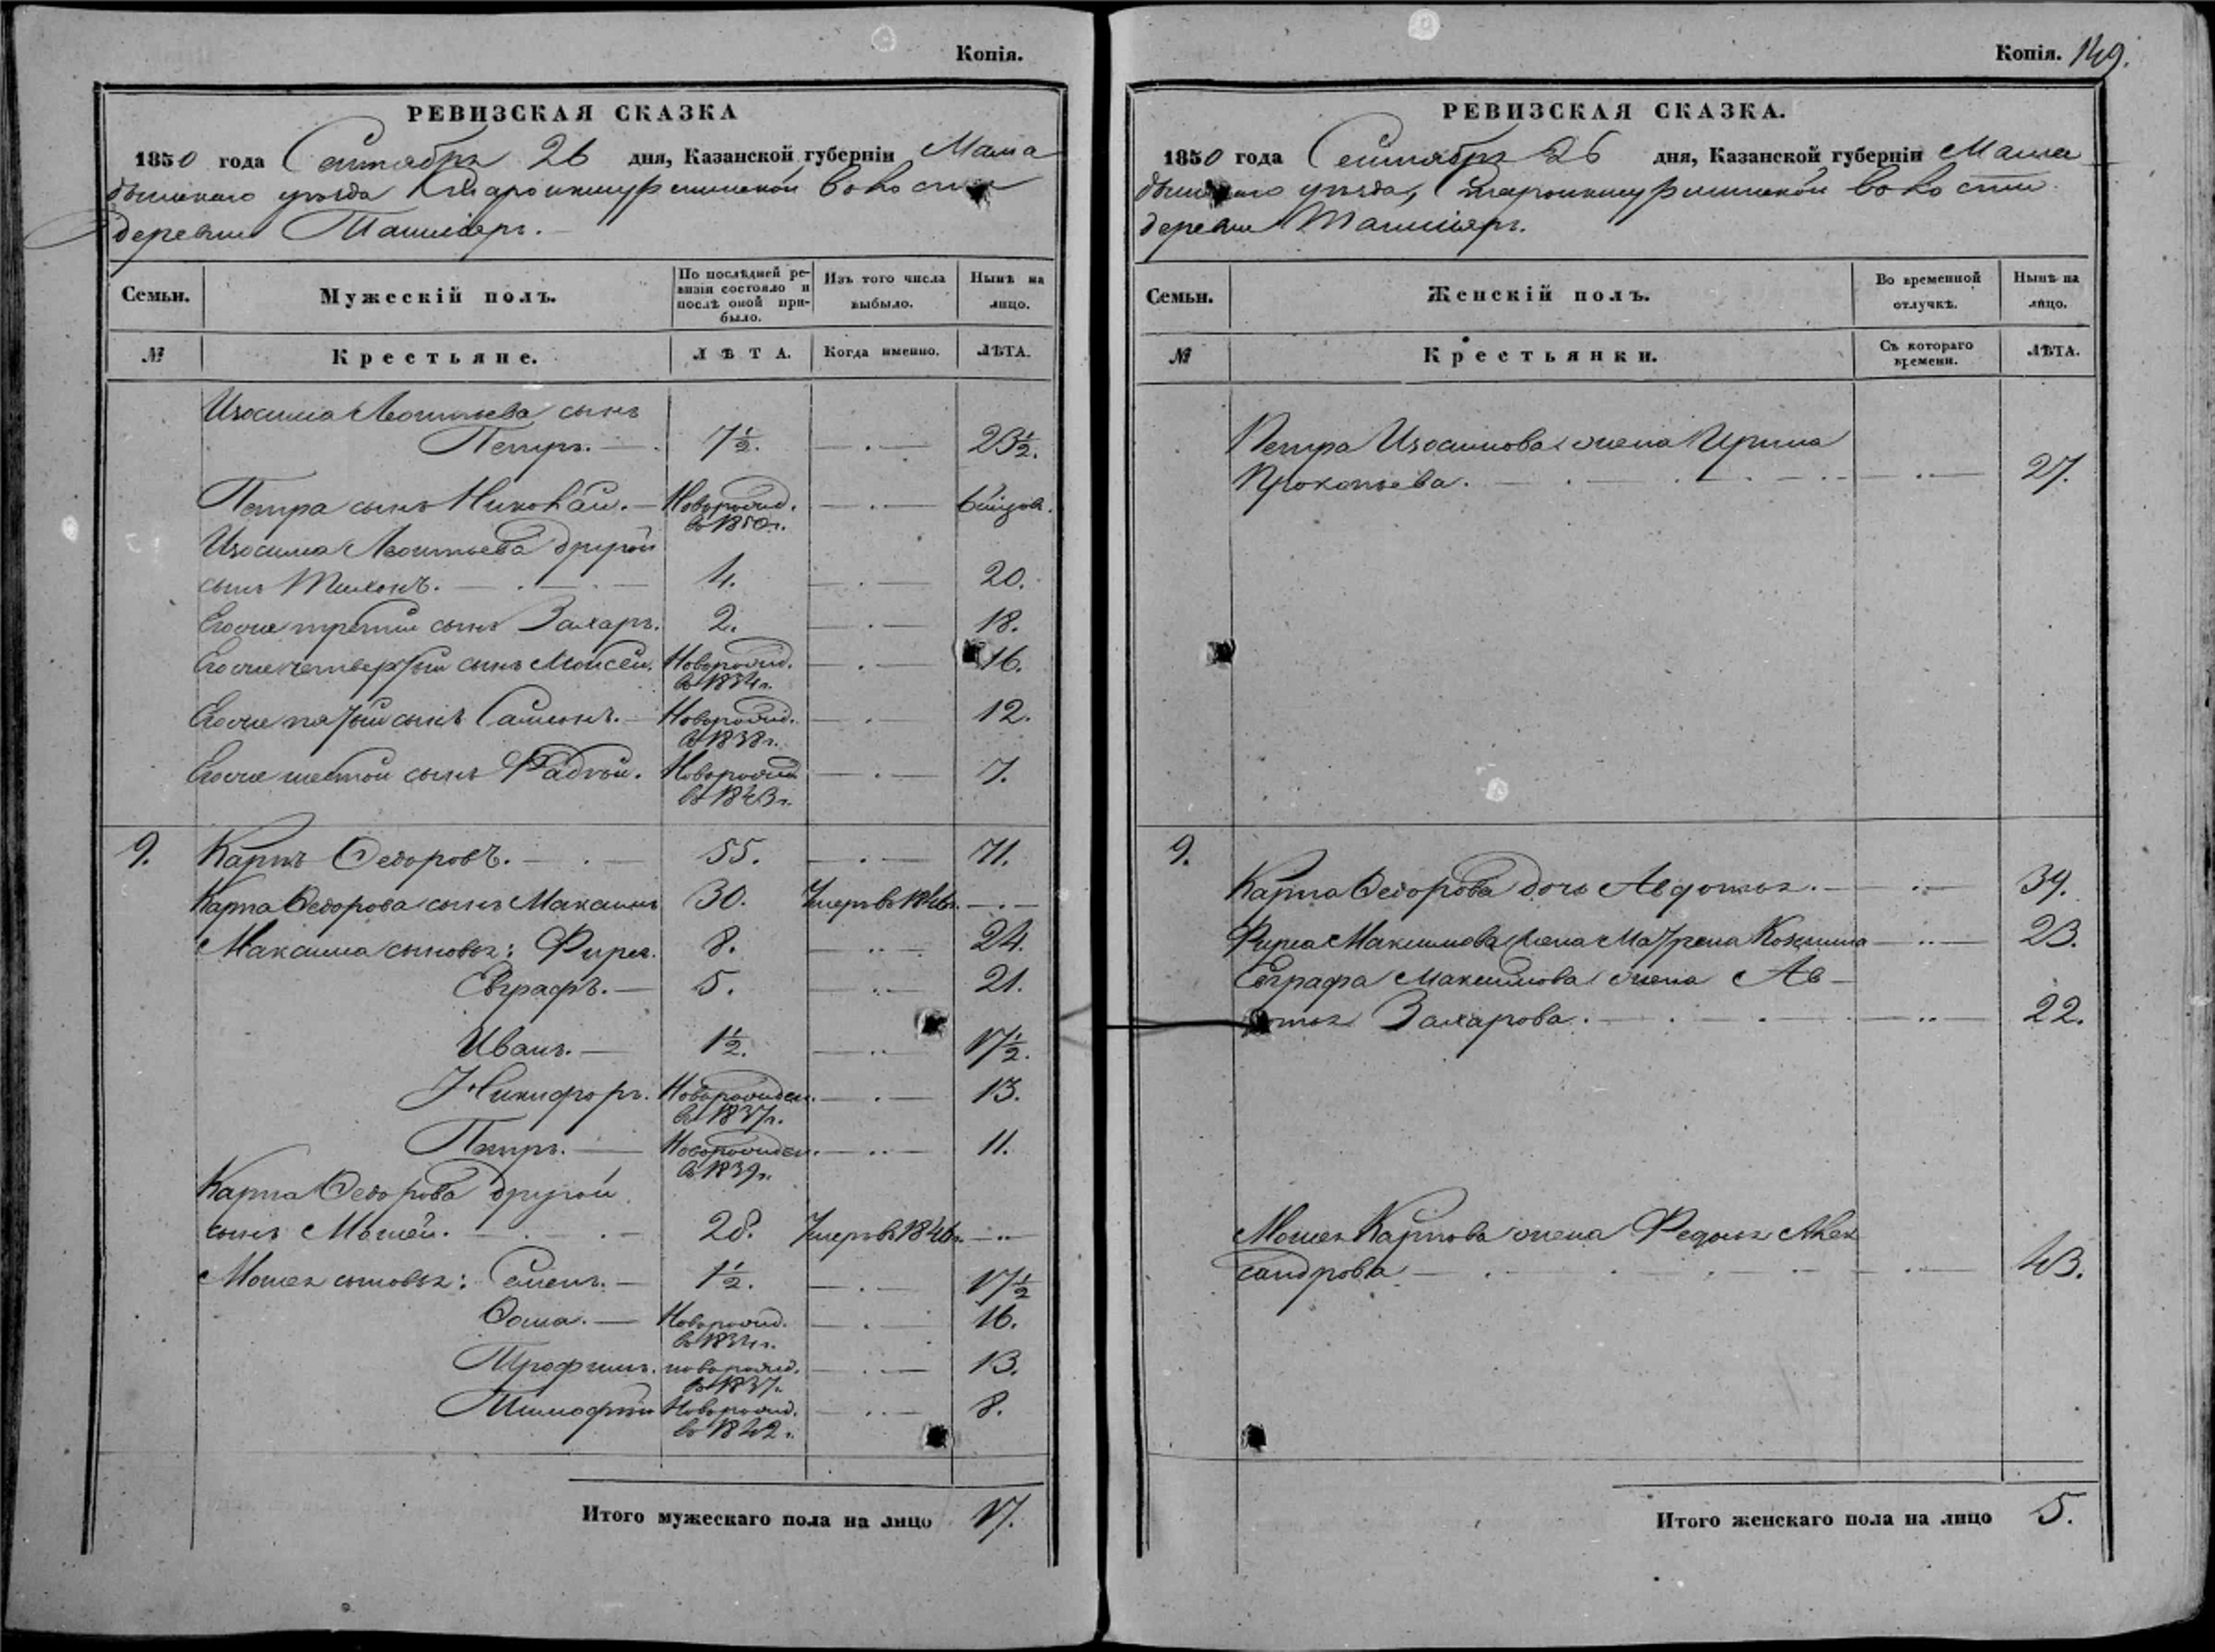 Копія.
РЕВИЗСКАЯ СКАЗКА
1850 года Сентября 26 дня, Казанской губерніи Мама
дышскаго уѣзда Старокишуръ волости
деревни Ташліяръ.
Семьи.
Мужескій полъ.
По послѣдней ре-
визіи состояло и
послѣ оной при-
было.
Изъ того числа
выбыло.
Нынѣ на
лицо.
№
Крестьяне.
ЛѢТА.
Когда именно.
ЛѢТА.
Изосима Леонтьева сынъ
Петръ. 7½. 23½.
Петра сынъ Николай. Новорожд. 
въ 1850г.
Изосима Леонтьева другой
сынъ Тихонъ. 4. 20.
Егоже третій сынъ Захаръ. 2. 18.
Егоже четвертый сынъ Моисей. Новорожд. 16.
въ 1834г.
Егоже пятый сынъ Самсонъ. Новорожд. 12.
въ 1838г.
Егоже шестой сынъ Фадѣй. Новорожд 7.
въ 1843г.
9. Карпъ Ѳедоровъ. 55. 71.
Карпа Ѳедорова сынъ Максимъ 30. Умеръ въ 1846г.
Максима сыновья: Фирсъ. 8. 24.
Евграфъ. 5. 21.
Иванъ. 1½. 17½.
Никифоръ. Новорожден. 13.
въ 1837г.
Петръ. Новорожден. 11.
въ 1839г.
Карпа Ѳедорова другой
сынъ Мосѣй. 28. Умеръ въ 1846г.
Мосея сыновья: Семенъ. 1½. 17½
Ѳома. Новорожд. 16.
въ 1834г.
Трофимъ. новорожд. 13.
въ 1837г.
Тимофѣй Новорожд. 8.
въ 1842г.
Итого мужескаго пола на лицо 17.
Копія. 149.
РЕВИЗСКАЯ СКАЗКА.
1850 года Сентября 26 дня, Казанской губерніи Мама
дышскаго уѣзда, волости
деревни Ташліяръ.
Семьи.
Женскій полъ.
Во временной
отлучкѣ.
Нынѣ на
лицо.
№
Крестьянки.
Съ котораго
времени.
ЛѢТА.
Петра Изосимова жена Ирина
Прокопьева. 27.
9.
Карпа Ѳедорова дочь Авдотья. 39.
Фирса Максимова жена Матрена Козмина 23.
Евграфа Максимова жена Ав-
дотья Захарова. 22.
Мосея Карпова жена Федосья Алек
сандрова 43.
Итого женскаго пола на лицо 5.